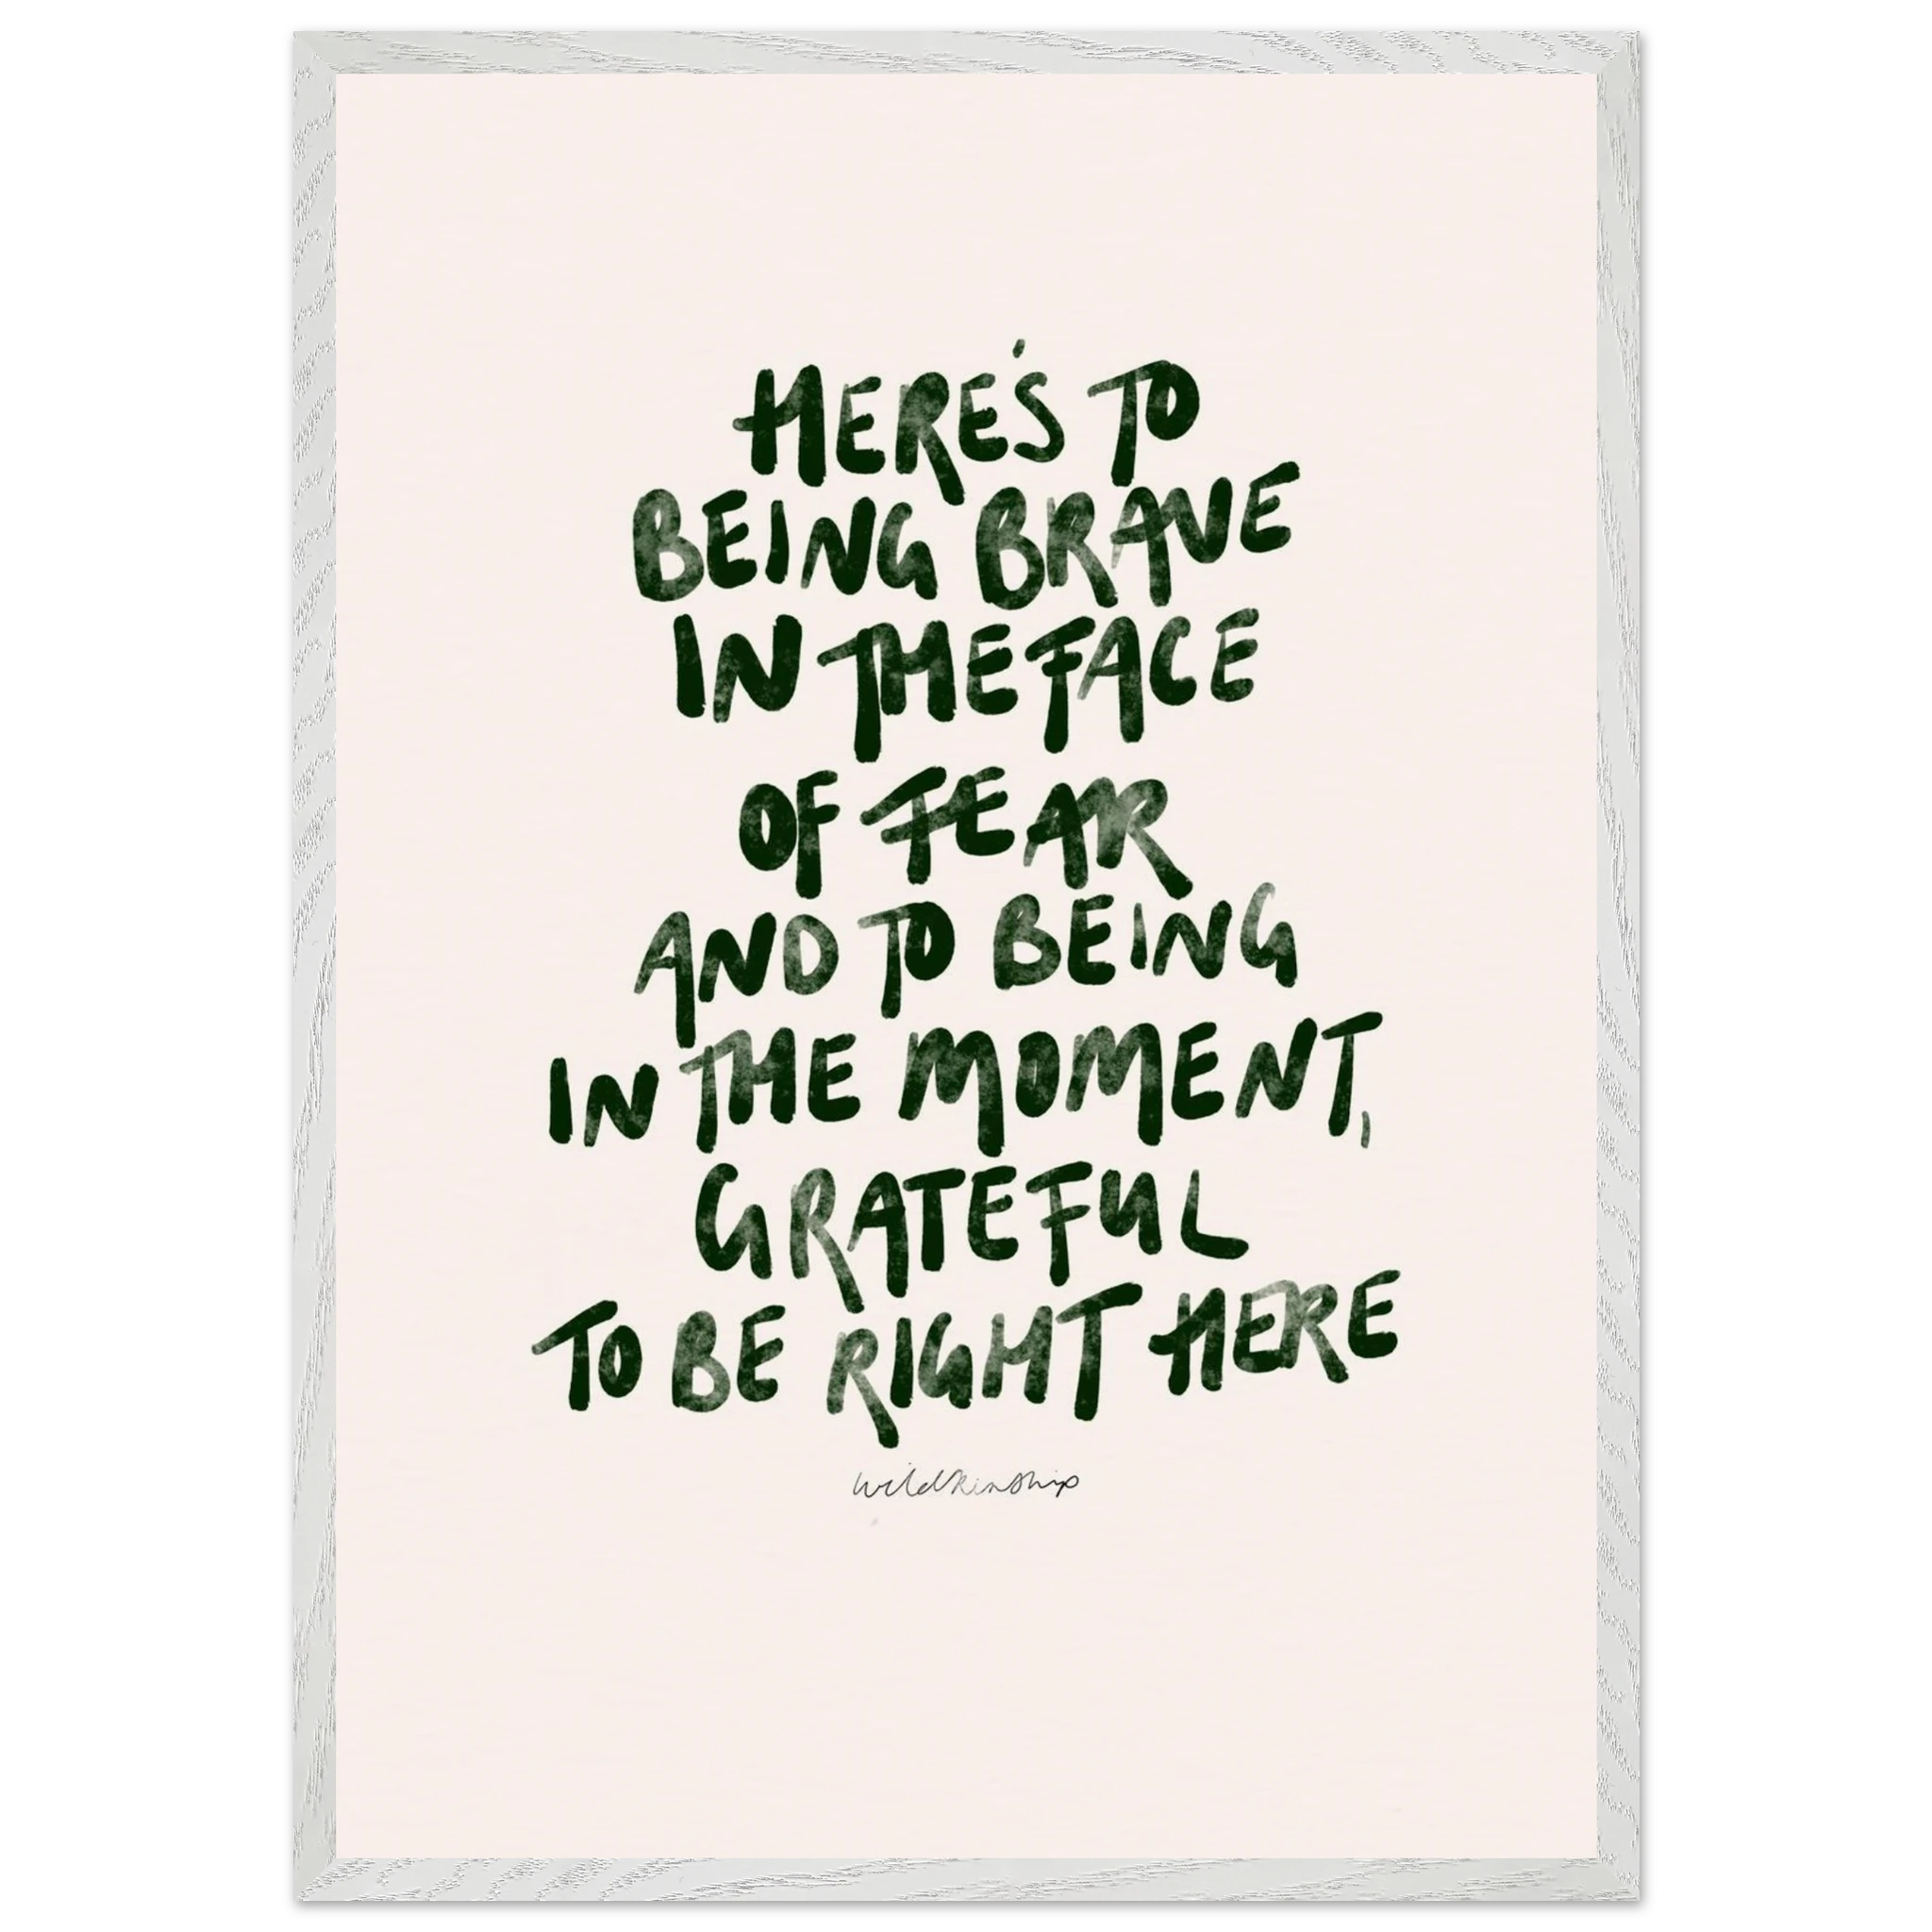 HERE'S TO
BEING BRAVE
IN THE FACE
OF FEAR
AND TO BEING
IN THE MOMENT,
GRATEFUL
TO BE RIGHT HERE
wildkinship